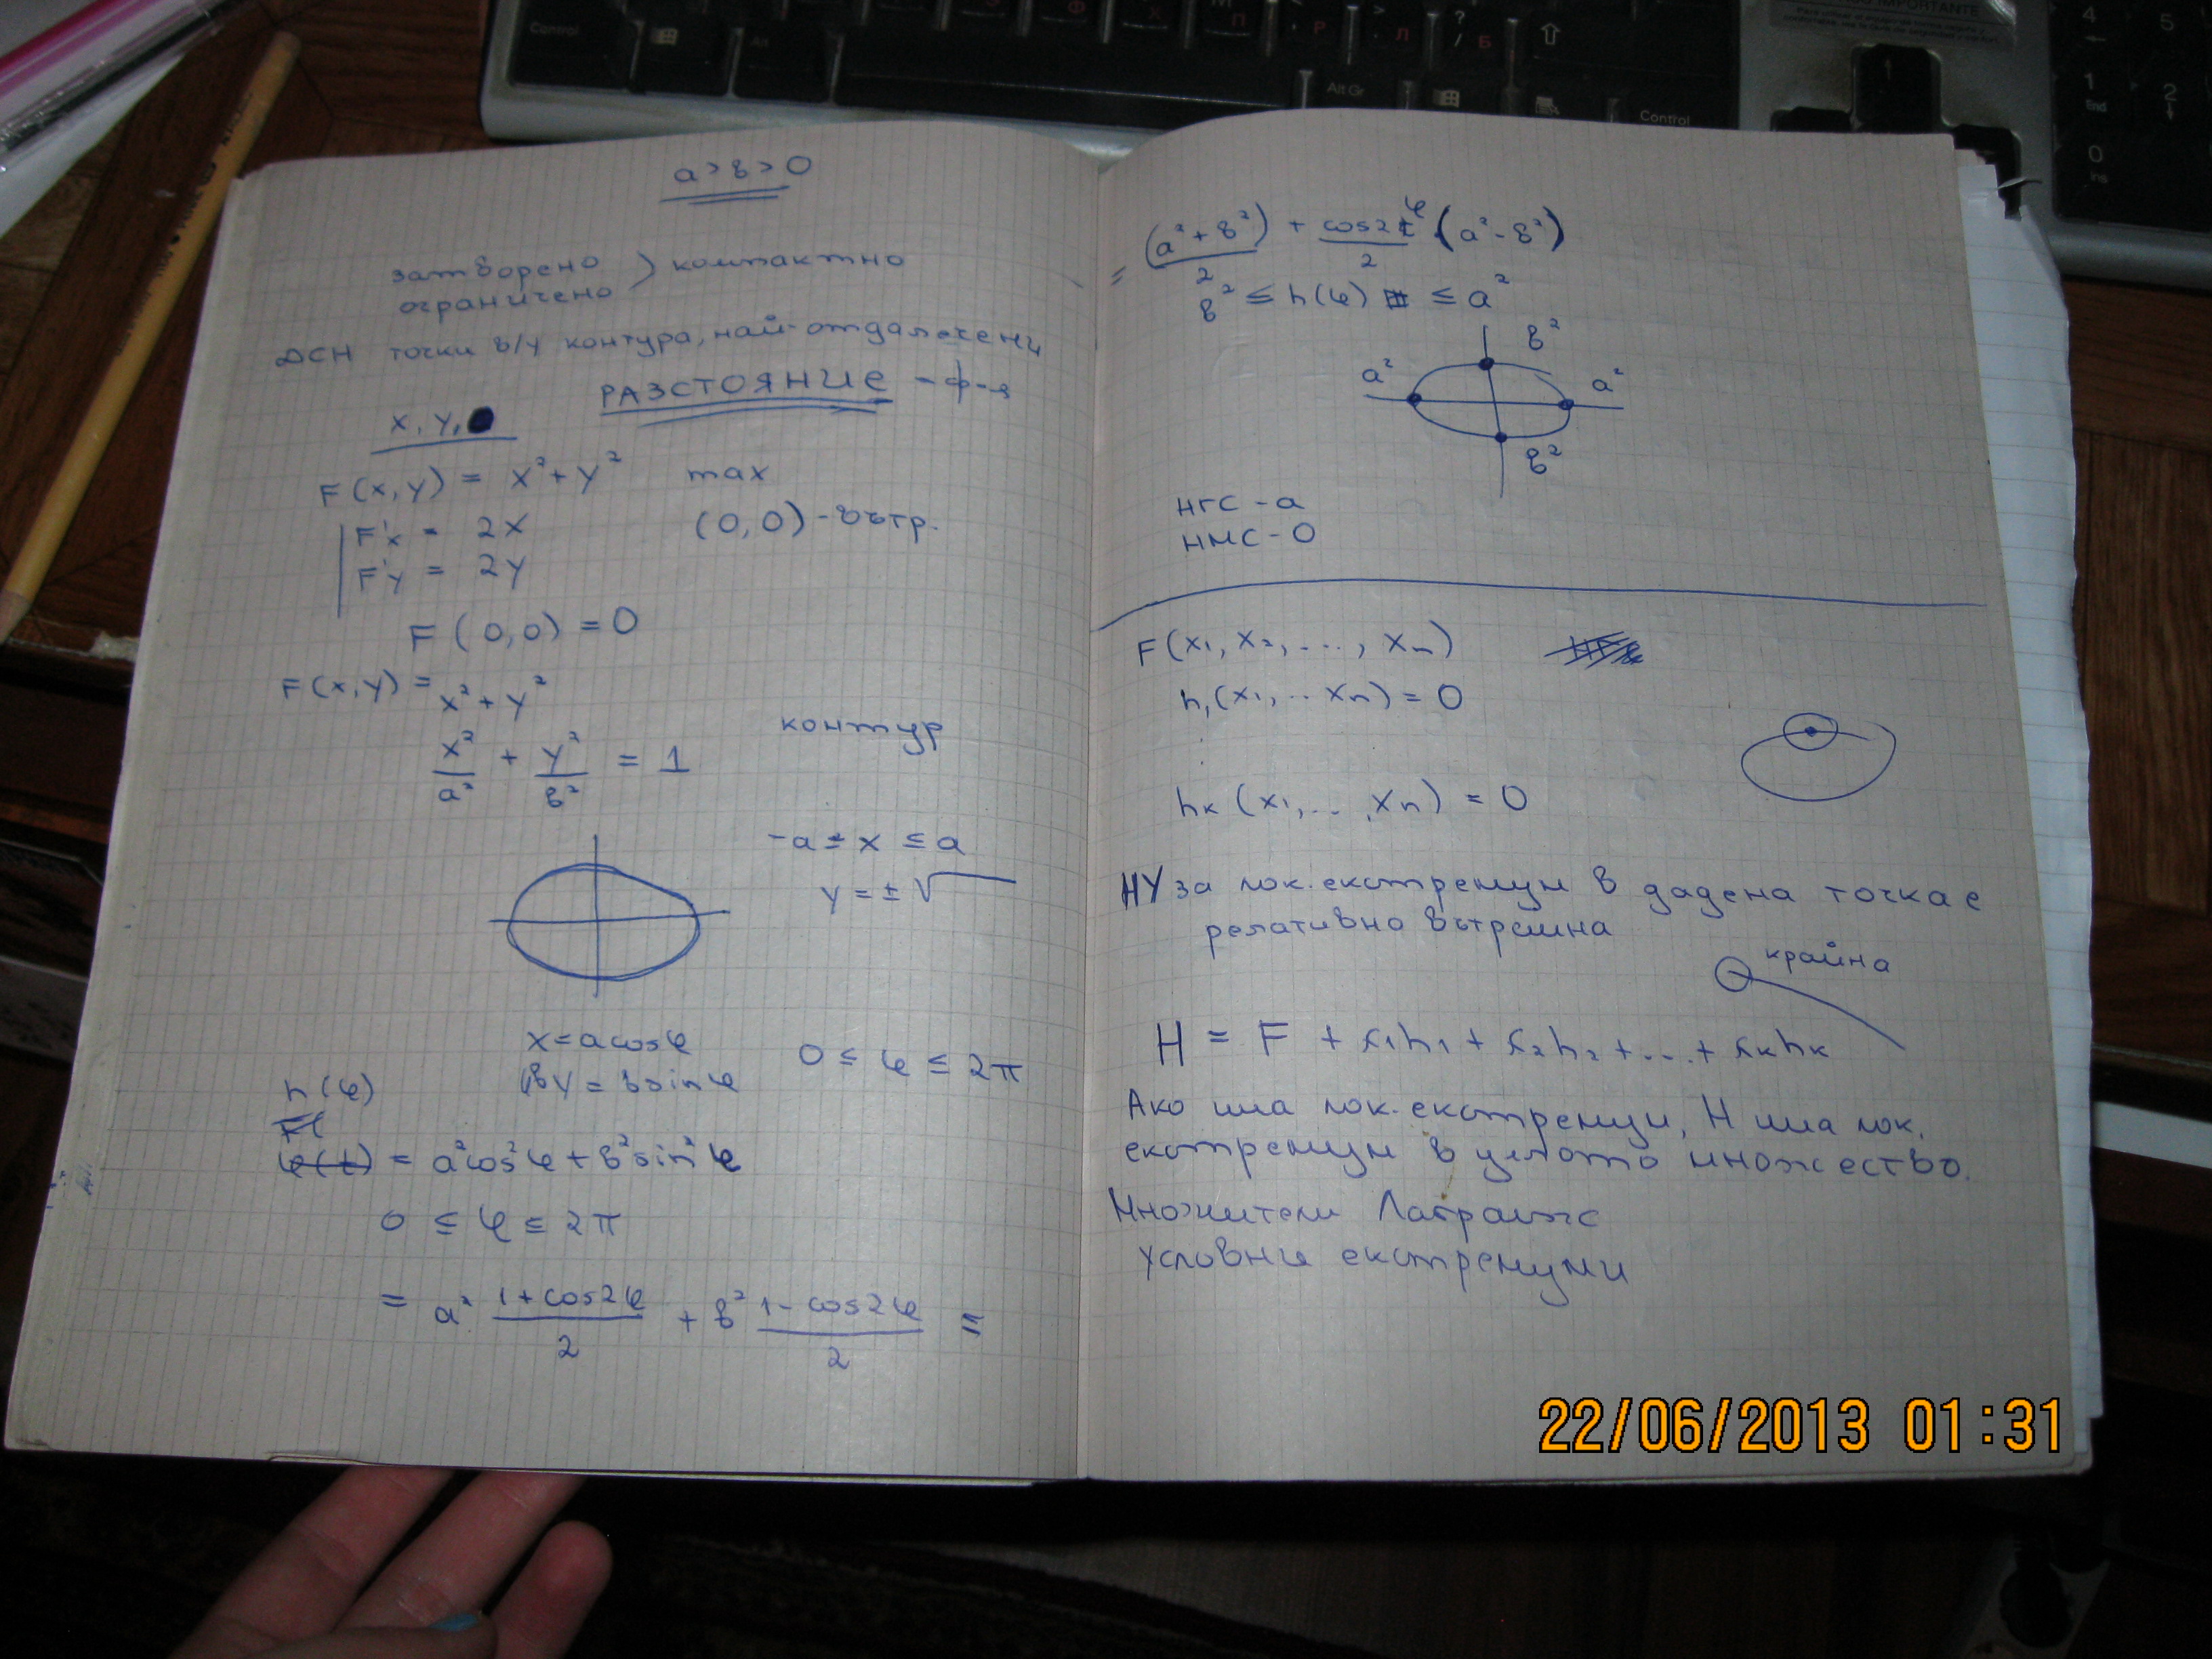 a > в > 0
затворено
ограничено
> компактно
ДСН точки в/у контура, най-отдалечени
РАЗСТОЯНИЕ - ф-я
x, y,
F(x,y) = x² + y² max
F'x = 2x (0,0) - вътр.
F'y = 2y
F(0,0) = 0
F(x,y) = x² + y²
контур
x²/a² + y²/в² = 1
-a ≤ x ≤ a
y = ± √
x = a cosφ
y = в sinφ
0 ≤ φ ≤ 2π
h(φ)
= a²cos²φ + в²sin²φ
0 ≤ φ ≤ 2π
= a² (1+cos2φ)/2 + в² (1-cos2φ)/2 =
= (a² + в²)/2 + cos2φ/2 (a² - в²)
в² ≤ h(φ) ≤ a²
в²
a² a²
в²
НГС - a
НМС - 0
F(x₁, x₂, ..., xₙ)
h₁(x₁, .. xₙ) = 0
hк(x₁, ..., xₙ) = 0
НУ за лок. екстремум в дадена точка е
релативно вътрешна
крайна
H = F + λ₁h₁ + λ₂h₂ + ... + λкhк
Ако има лок. екстремум, H има лок.
екстремум в цялото множество.
Множители Лагранж
условни екстремуми
22/06/2013 01:31
Control
Alt Gr
Control
IMPORTANTE
Ф
Х
П
Р
Л
Б
4
5
1
End
2
0
Ins